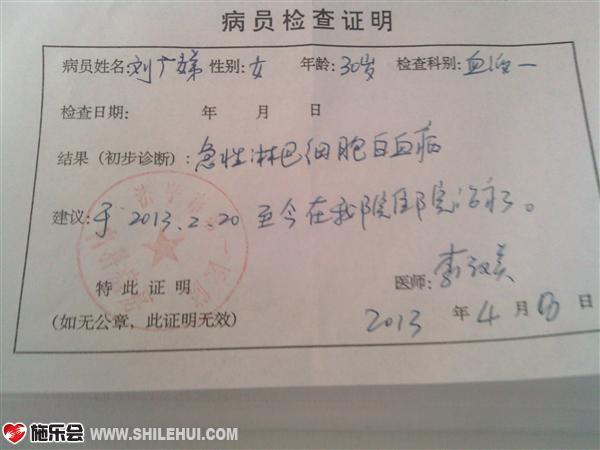 病员检查证明
病员姓名:刘广娣 性别:女 年龄:30岁 检查科别:血液一
检查日期: 年 月 日
结果（初步诊断）:急性淋巴细胞白血病
建议:于2013.2.20至今在我院住院治疗。
特此证明 医师:李
(如无公章，此证明无效) 2013年4月 日
施乐会 WWW.SHILEHUI.COM